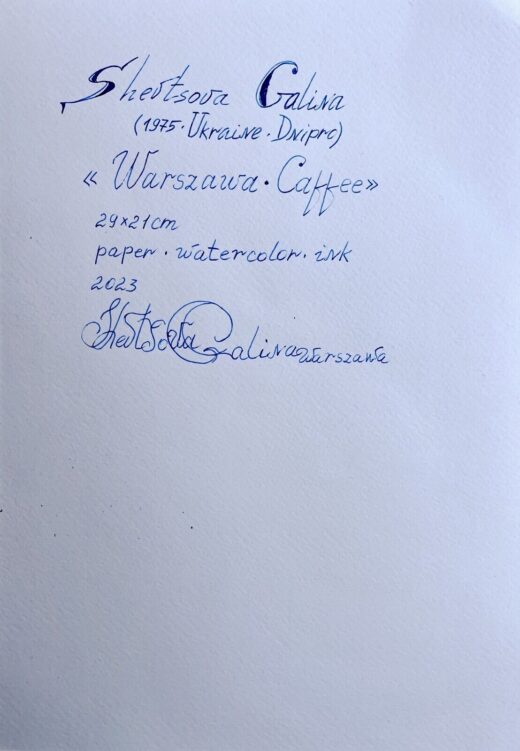 Shevtsova Galina
(1975 · Ukraine · Dnipro)
« Warszawa · Caffee»
29x21cm
paper · watercolor · ink
2023
Shevtsova Galina Warszawa